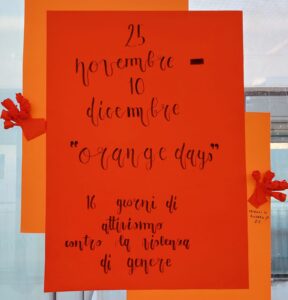 25
novembre -
10
dicembre
"orange days"
16 giorni di
attivismo
contro la violenza
di genere